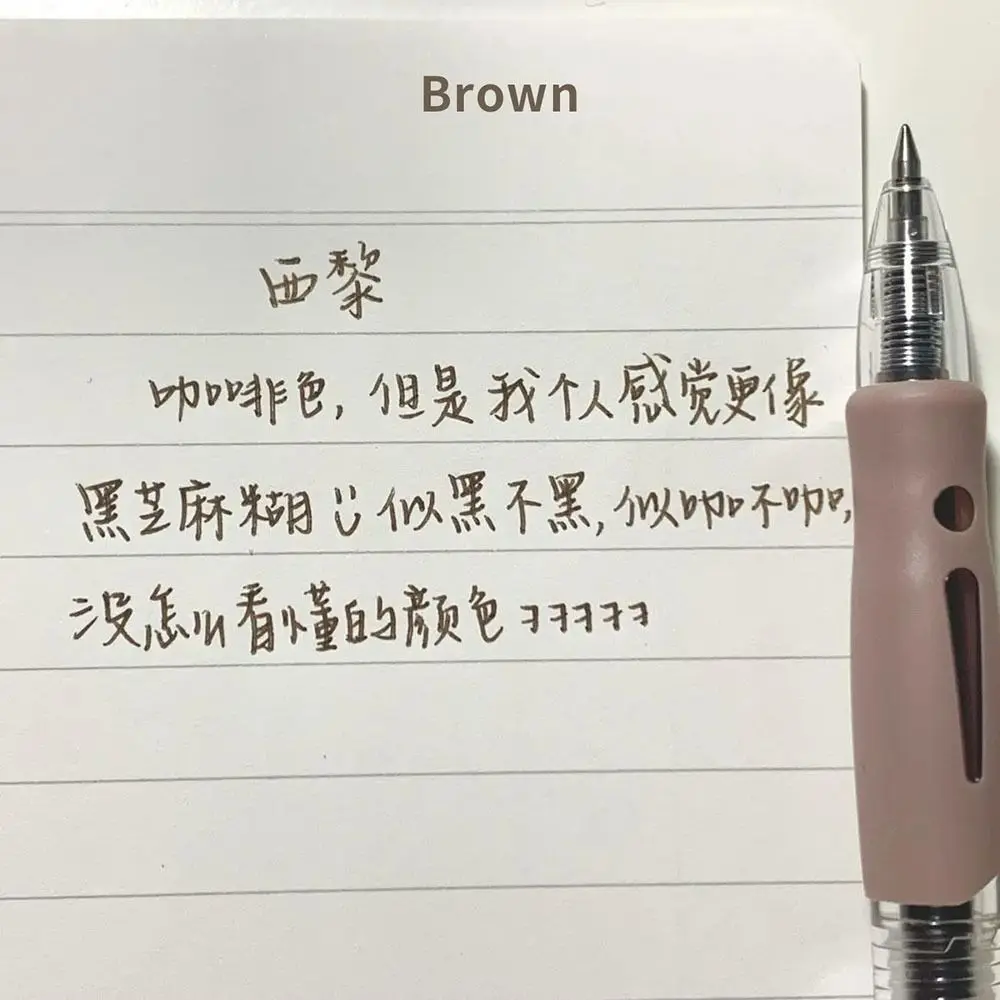 Brown
西黎
咖啡色,但是我个人感觉更像
黑芝麻糊:) 似黑不黑,似咖不咖,
没怎么看懂的颜色ㅋㅋㅋㅋㅋ